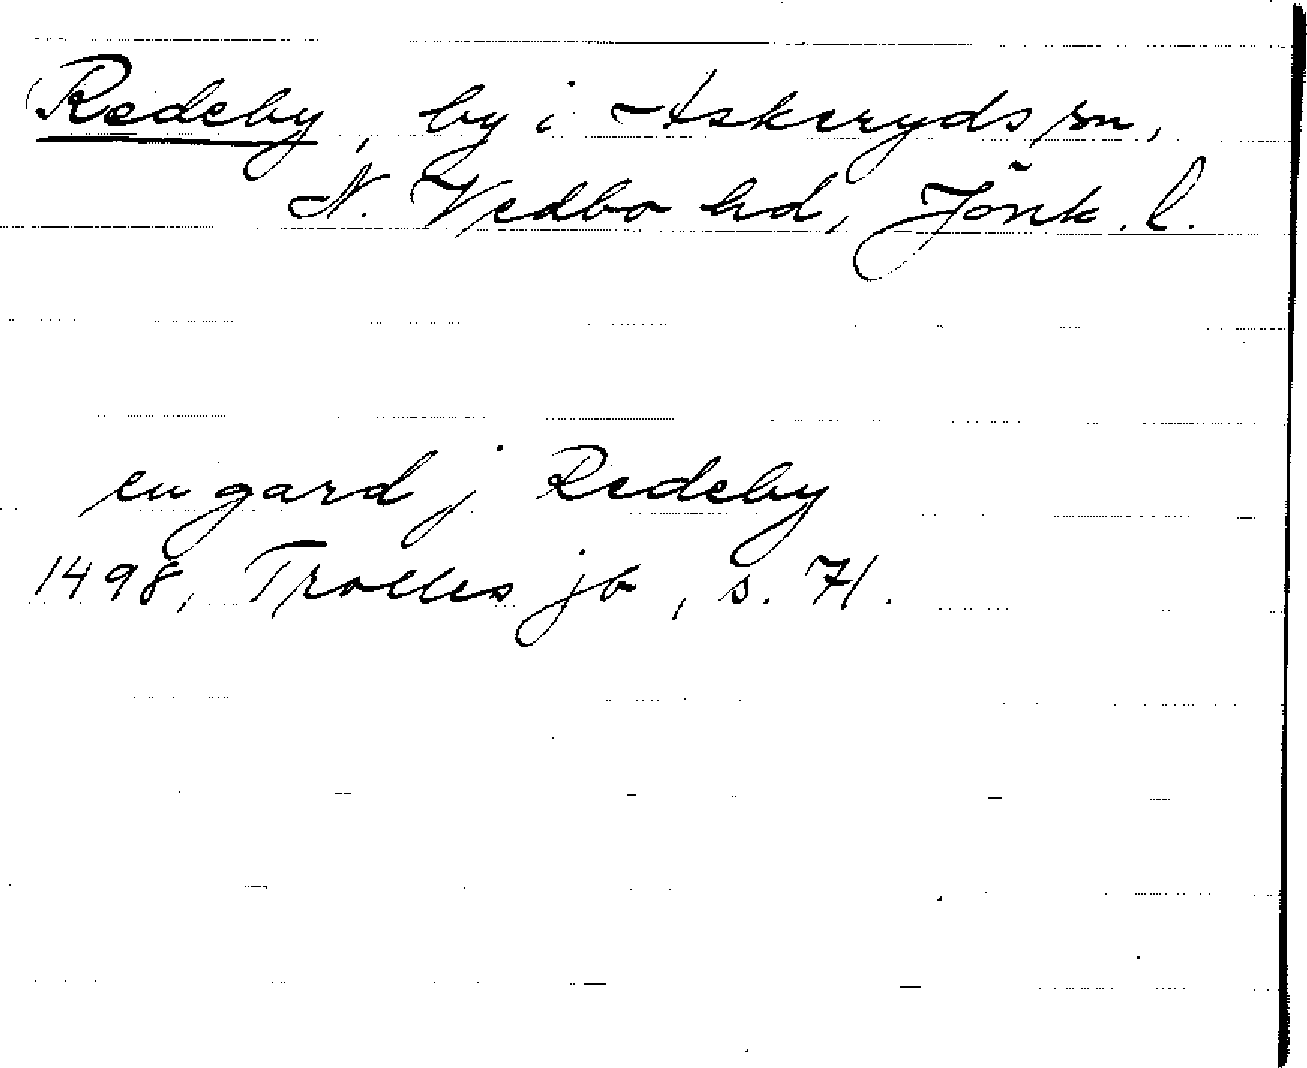 Redeby, by i Askeryds sn,
N. Vedbo hd, Jönk. l.
en gard j Redeby
1498, Trolles jb, s. 71.